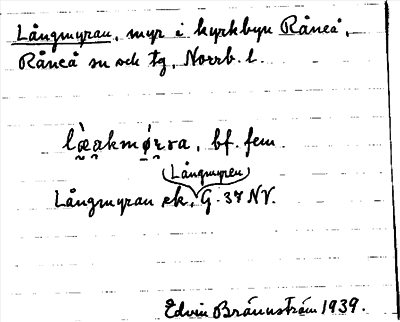 Långmyran, myr i kyrkbyn Råneå,
Råneå sn och tg, Norrb. l.
bf. fem
(Långmyren)
Långmyran ek. G. 37 NV.
Edvin Brännström 1939.